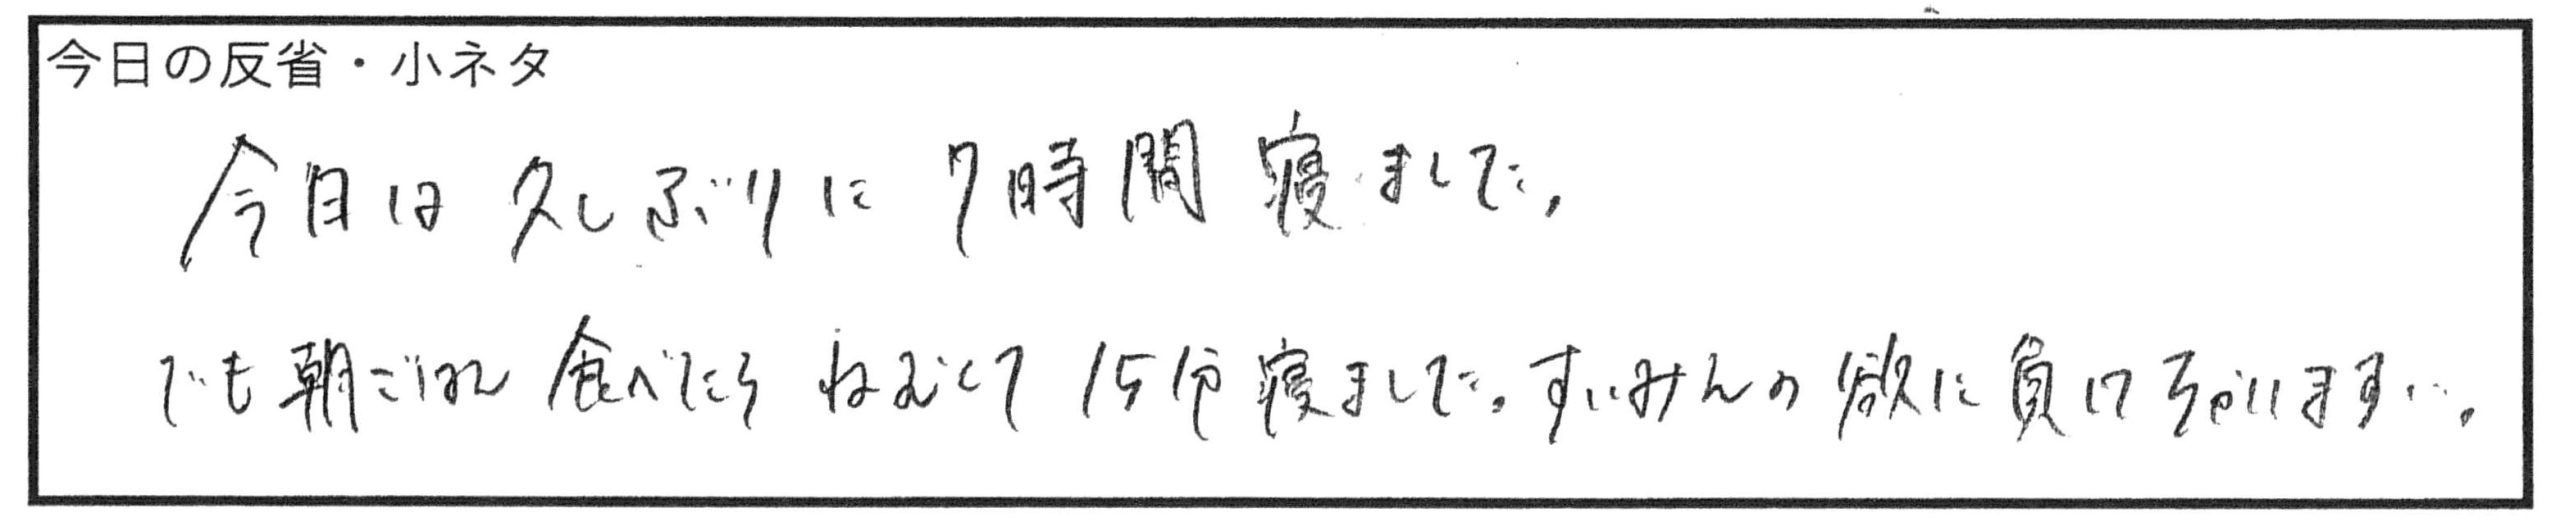 今日の反省・小ネタ
今日は久しぶりに7時間寝ました。
でも朝ごはん食べたらねむくて15分寝ました。すいみんの欲に負けちゃいます…。